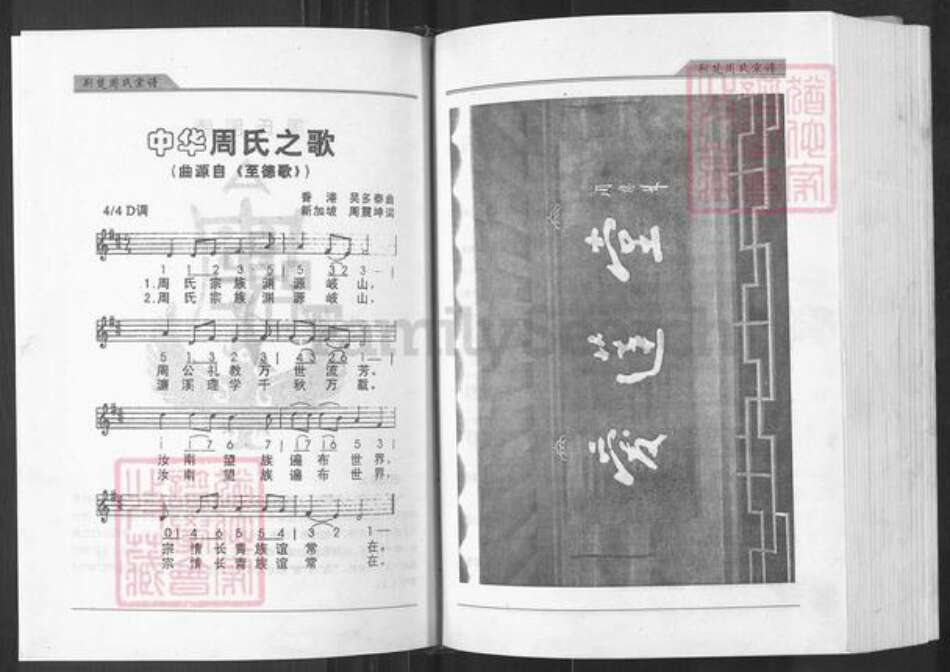 荆楚周氏宗谱
中华周氏之歌
(曲源自《至德歌》)
香 港 吴多泰曲
4/4 D调
新加坡 周震坤词
1 1 2 3 · 5 | 5 3 2 3 - |
1.周 氏 宗 族 渊 源 岐 山,
2.周 氏 宗 族 渊 源 岐 山,
5 1 3 2 3 | 4 3 2 6 1 — |
周 公 礼 教 万 世 流 芳。
濂 溪 理 学 千 秋 万 载。
i i 7 6 · 7 | i 7 i 6 5 3 |
汝 南 望 族 遍 布 世 界,
汝 南 望 族 遍 布 世 界,
0 1 4 6 5 5 4 | 3 2 1 —
宗 情 长 青 族 谊 常 在。
宗 情 长 青 族 谊 常 在。
荆楚周氏宗谱
周恩莱
爱莲堂